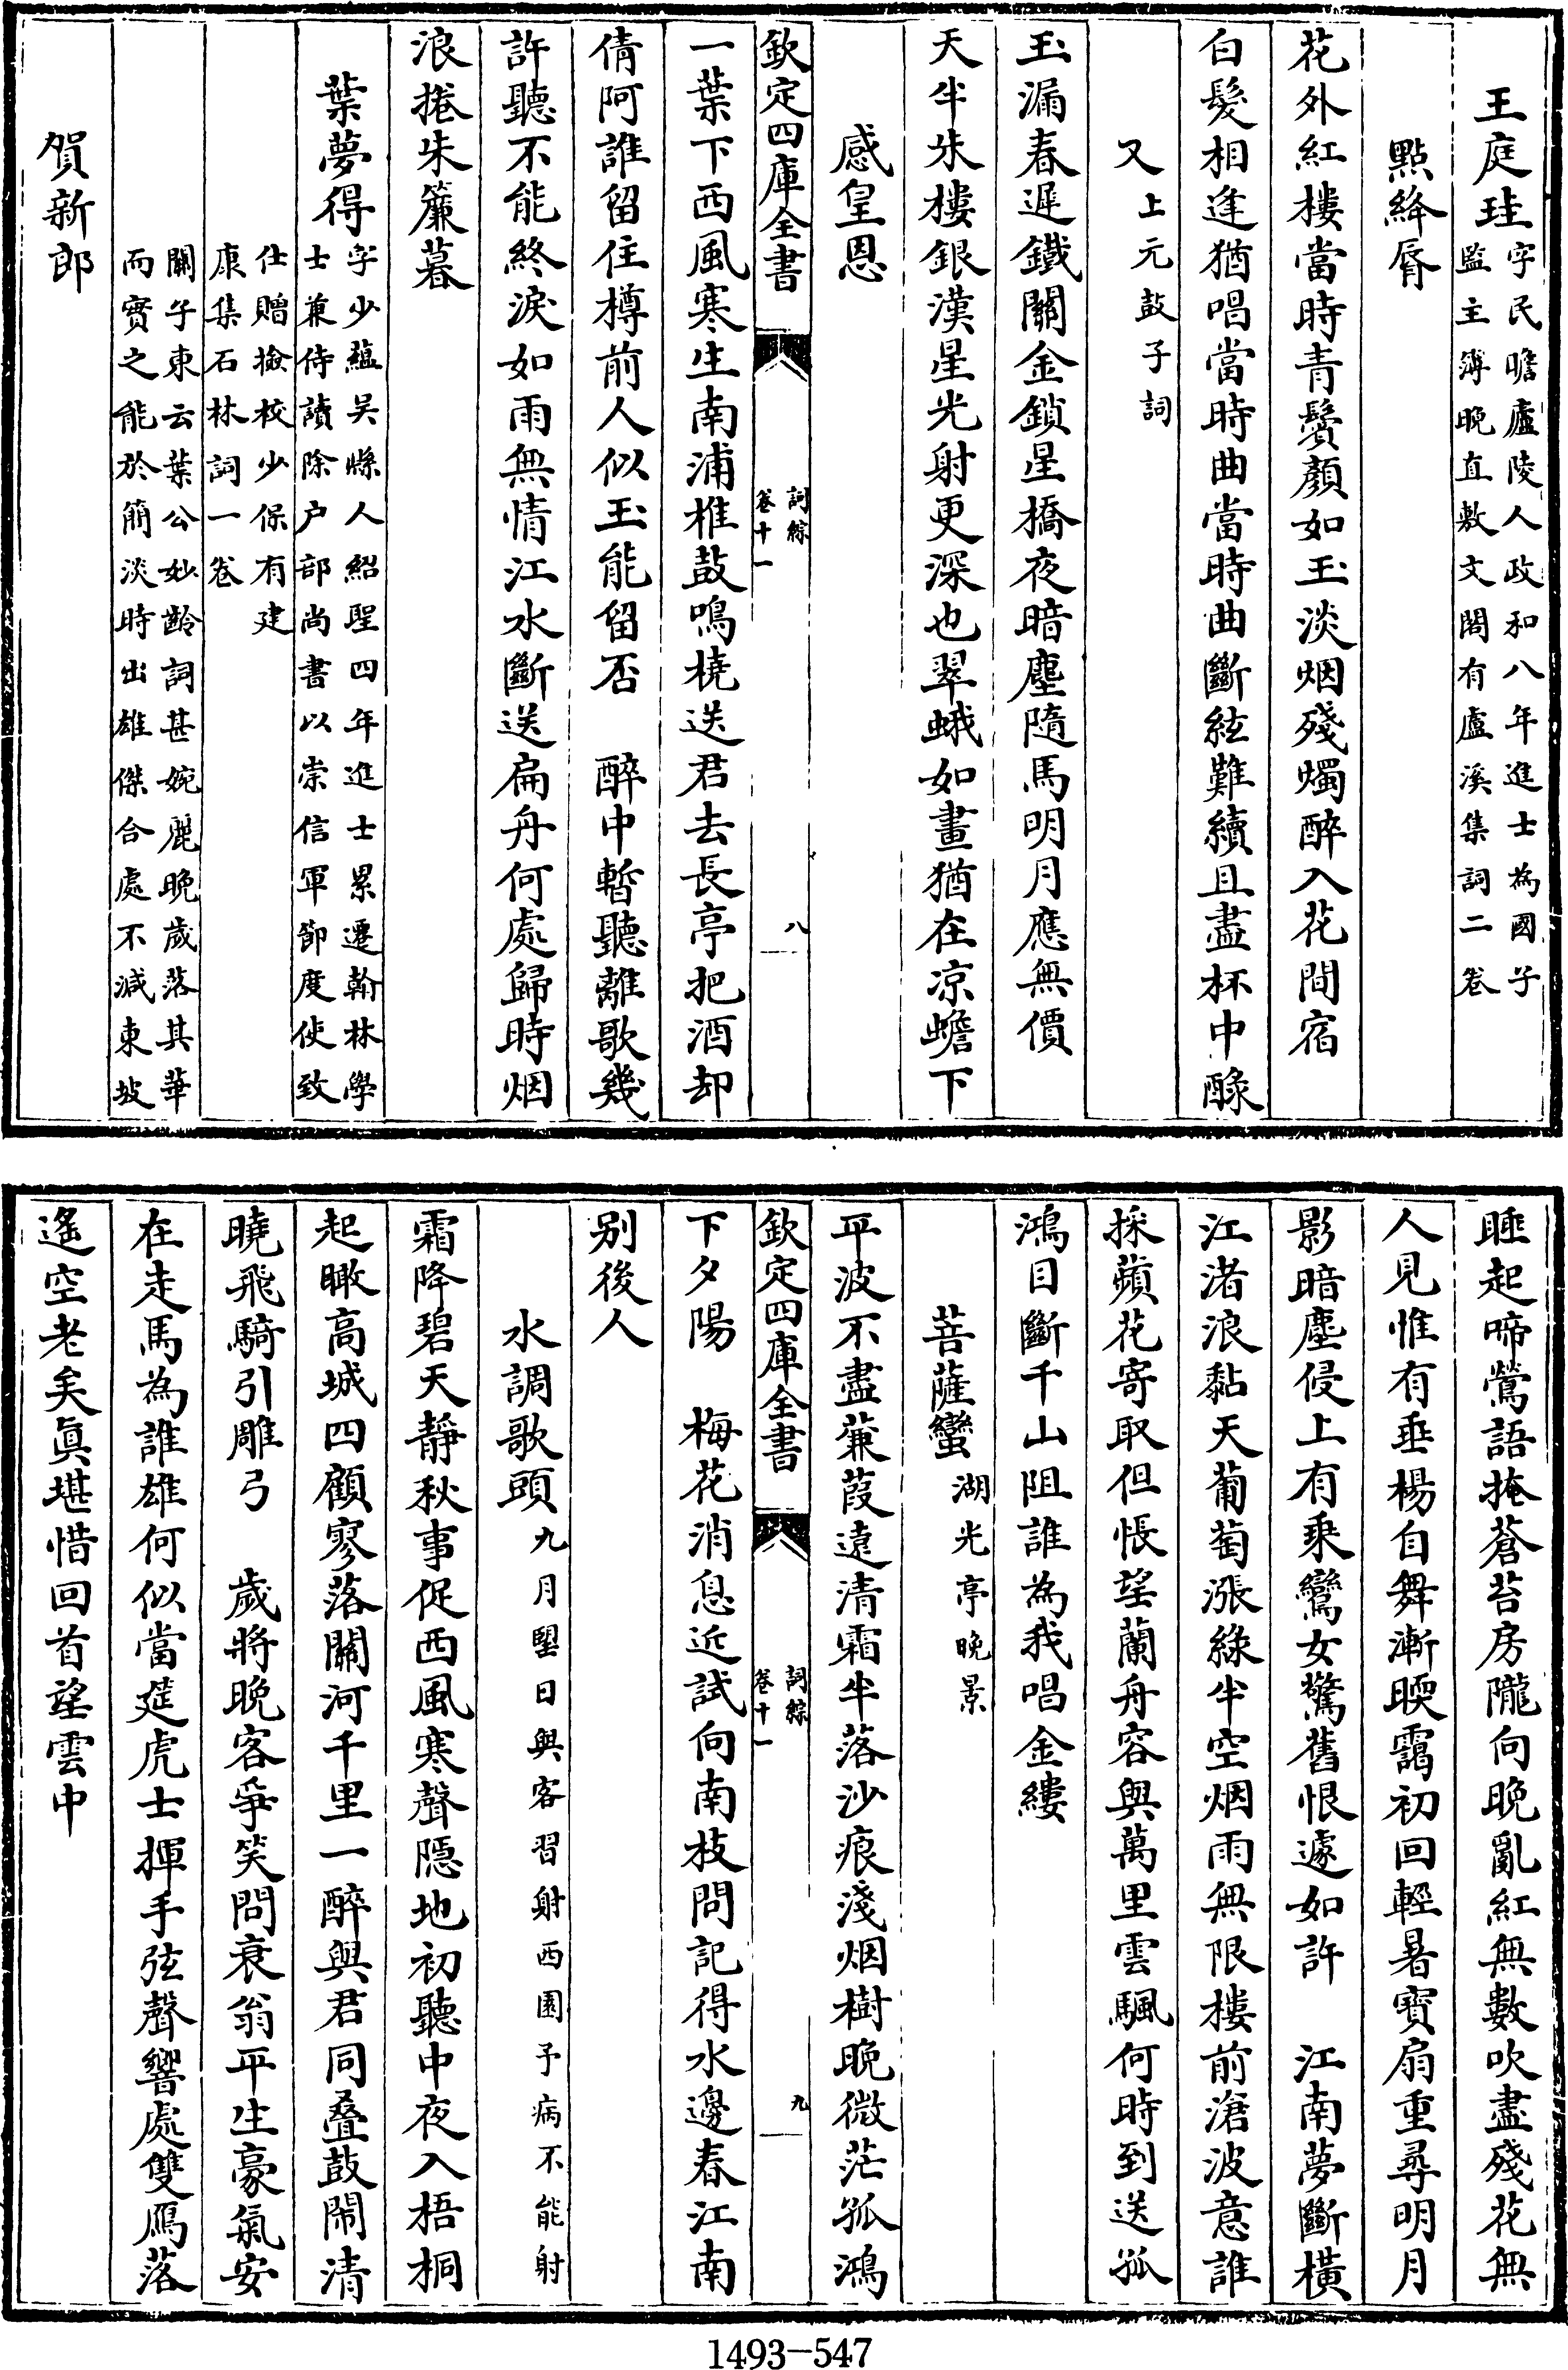 王庭珪字民瞻廬陵人政和八年進士為國子
監主簿晚直敷文閣有盧溪集詞二卷
點絳脣
花外紅樓當時青鬢顏如玉淡烟殘燭醉入花間宿
白髮相逢猶唱當時曲當時曲斷絃難續且盡杯中醁
又上元鼓子詞
玉漏春遲鐵關金鎖星橋夜暗塵隨馬明月應無價
天半朱樓銀漢星光射更深也翠蛾如畫猶在凉蟾下
感皇恩
欽定四庫全書
詞綜
卷十一
八
一葉下西風寒生南浦椎鼓鳴橈送君去長亭把酒却
倩阿誰留住樽前人似玉能留否　醉中暫聽離歌幾
許聽不能終淚如雨無情江水斷送扁舟何處歸時烟
浪捲朱簾暮
葉夢得字少蘊吳縣人紹聖四年進士累遷翰林學
士兼侍讀除户部尚書以崇信軍節度使致
仕贈撿校少保有建
康集石林詞一卷
關子東云葉公妙齡詞甚婉麗晚歲落其華
而實之能於簡淡時出雄傑合處不減東坡
賀新郎
睡起啼鶯語掩蒼苔房隴向晚亂紅無數吹盡殘花無
人見惟有垂楊自舞漸暖靄初回輕暑寳扇重尋明月
影暗塵侵上有乘鸞女驚舊恨遽如許　江南夢斷橫
江渚浪黏天葡萄漲綠半空烟雨無限樓前滄波意誰
採蘋花寄取但悵望蘭舟容與萬里雲颿何時到送孤
鴻目斷千山阻誰為我唱金縷
菩薩蠻湖光亭晚景
平波不盡蒹葭遠清霜半落沙痕淺烟樹晚微茫孤鴻
欽定四庫全書
詞綜
卷十一
九
下夕陽　梅花消息近試向南枝問記得水邊春江南
别後人
水調歌頭九月望日與客習射西園予病不能射
霜降碧天靜秋事促西風寒聲隱地初聽中夜入梧桐
起瞰高城四顧寥落關河千里一醉與君同叠鼓閙清
曉飛騎引雕弓　歲將晚客爭笑問衰翁平生豪氣安
在走馬為誰雄何似當筵虎士揮手弦聲響處雙鴈落
遙空老矣眞堪惜回首望雲中
1493—547